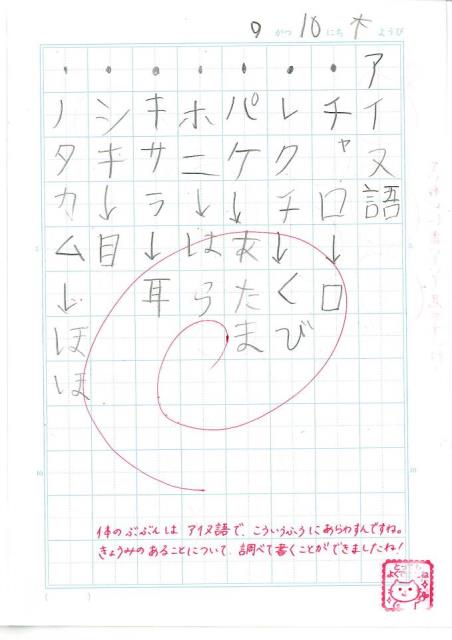 9がつ10にち木ようび
アイヌ語
・チャロ↓口
・レクチ↓くび
・パケ↓あたま
・ホニ↓はら
・キサラ↓耳
・シキ↓目
・ノタカム↓ほほ
体のぶぶんはアイヌ語で、こういうふうにあらわすんですね。
きょうみのあることについて、調べて書くことができましたね!
10
10